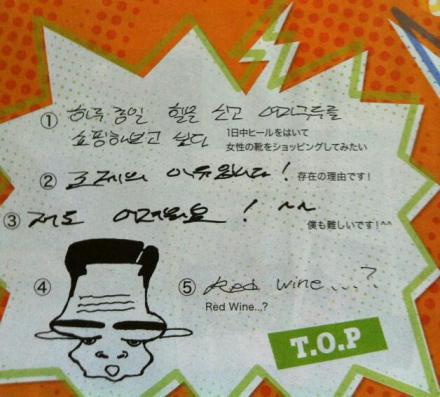 ① 하루종일 힐을 신고 여자구두를
쇼핑해보고 싶다 1日中ヒールをはいて
女性の靴をショッピングしてみたい
② 존재의 이유입니다! 存在の理由です!
③ 저도 어려워요! ^^ 僕も難しいです!^^
④
⑤ Red wine...?
Red Wine...?
T.O.P